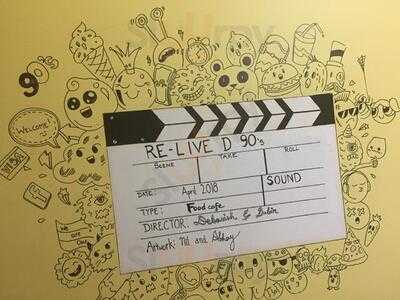 90s
Welcome!
RE-LIVE D 90's
SCENE TAKE ROLL
DATE: April 2018 SOUND
TYPE: Food cafe
DIRECTOR: Debasish & Subin
Artwork: Nil and Abhay
we are